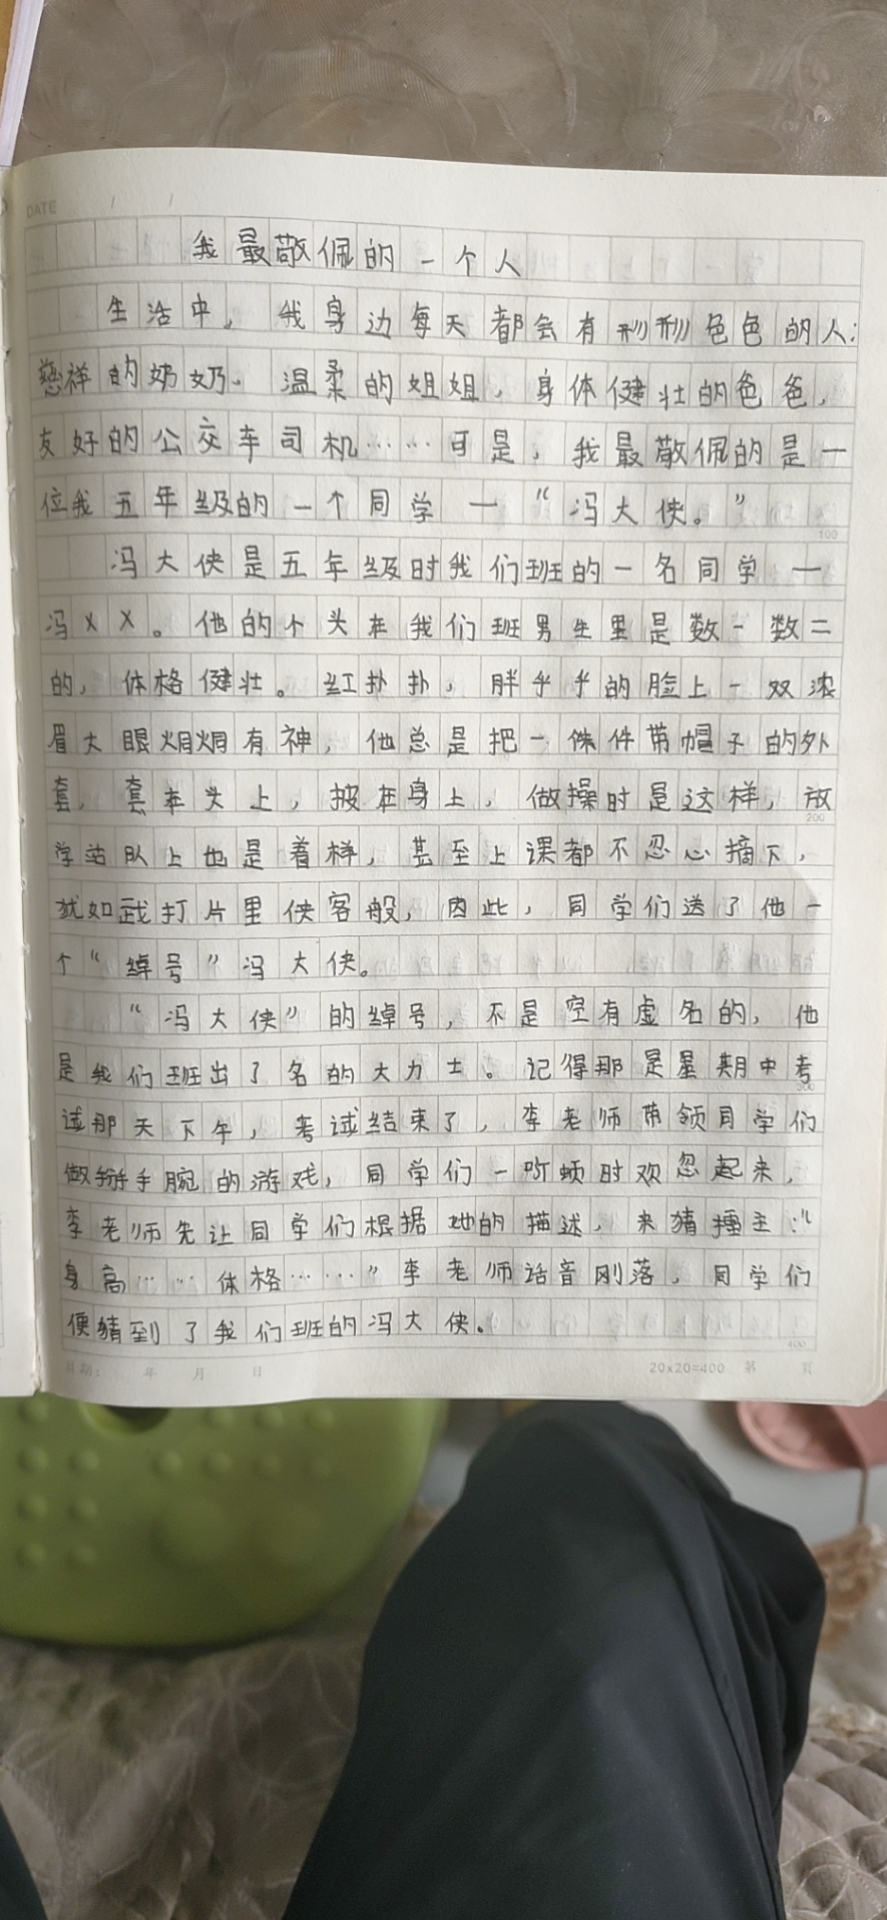 DATE / /
我最敬佩的一个人
生活中,我身边每天都会有形形色色的人:
慈祥的奶奶、温柔的姐姐,身体健壮的爸爸,
友好的公交车司机……可是,我最敬佩的是一
位我五年级的一个同学—“冯大侠。”
100
冯大侠是五年级时我们班的一名同学—
冯XX。他的个头在我们班男生里是数一数二
的,体格健壮。红扑扑,胖乎乎的脸上一双浓
眉大眼炯炯有神,他总是把一件带帽子的外
套,套在头上,披在身上,做操时是这样,放
200
学站队上也是着样,甚至上课都不忍心摘下,
犹如武打片里侠客般,因此,同学们送了他一
个“绰号”冯大侠。
“冯大侠”的绰号,不是空有虚名的,他
是我们班出了名的大力士。记得那是星期中考
300
试那天下午,考试结束了,李老师带领同学们
做掰手腕的游戏,同学们一听顿时欢忽起来,
李老师先让同学们根据她的描述,来猜擂主:“
身高……体格……”李老师话音刚落,同学们
便猜到了我们班的冯大侠。
400
日期: 年 月 日 20x20=400 第 页